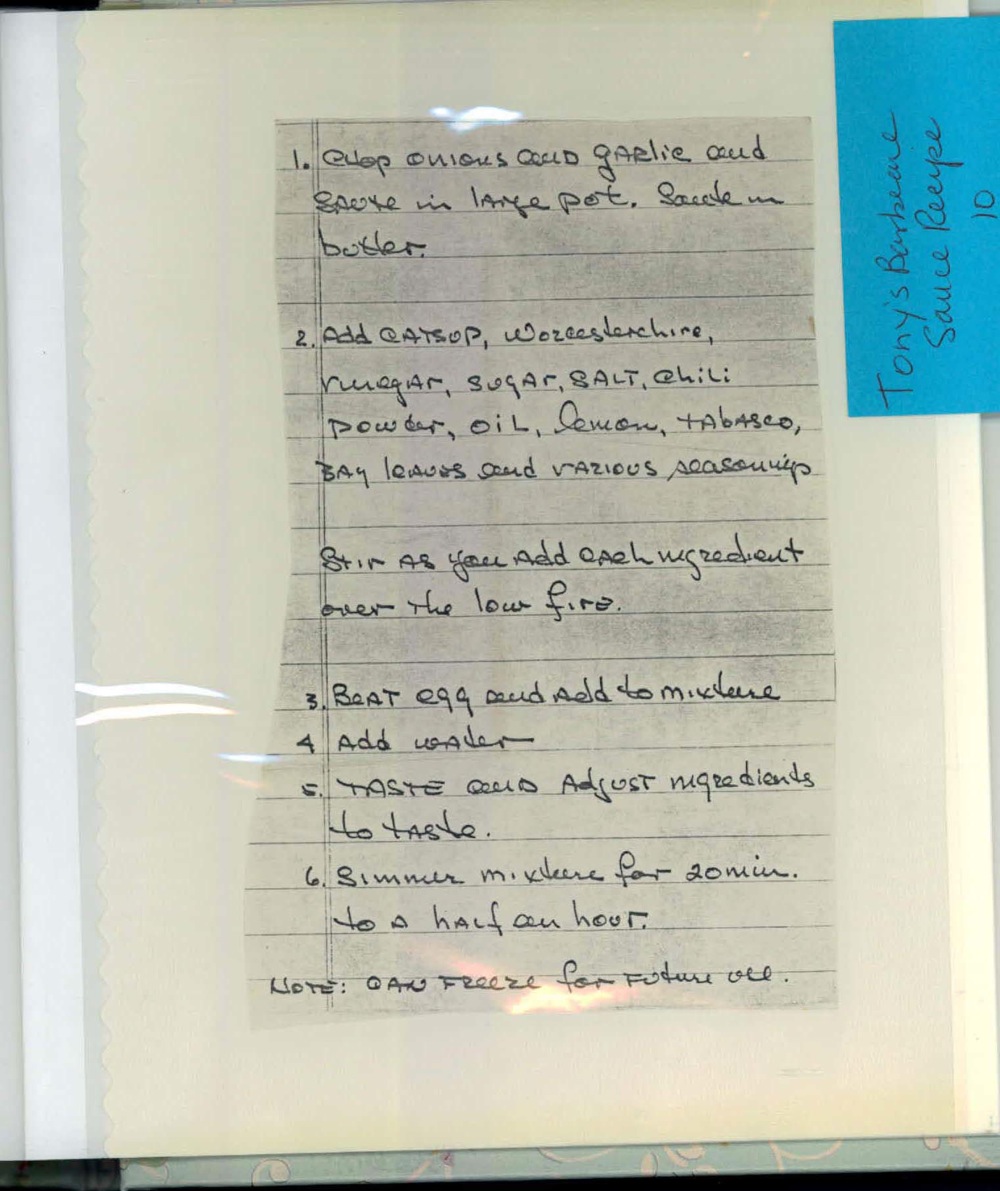 1. Chop onions and garlic and
saute in large pot. Saute in
butter.
2. Add catsup, Worcestershire,
vinegar, sugar, salt, chili
powder, oil, lemon, tabasco,
bay leaves and various seasonings
Stir as you add each ingredient
over the low fire.
3. Beat egg and add to mixture
4 Add water
5. TASTE and Adjust ingredients
to taste.
6. Simmer mixture for 20 min.
to a half an hour.
NOTE: CAN FREEZE for Future use.
Tony's Barbecue
Sauce Recipe
10